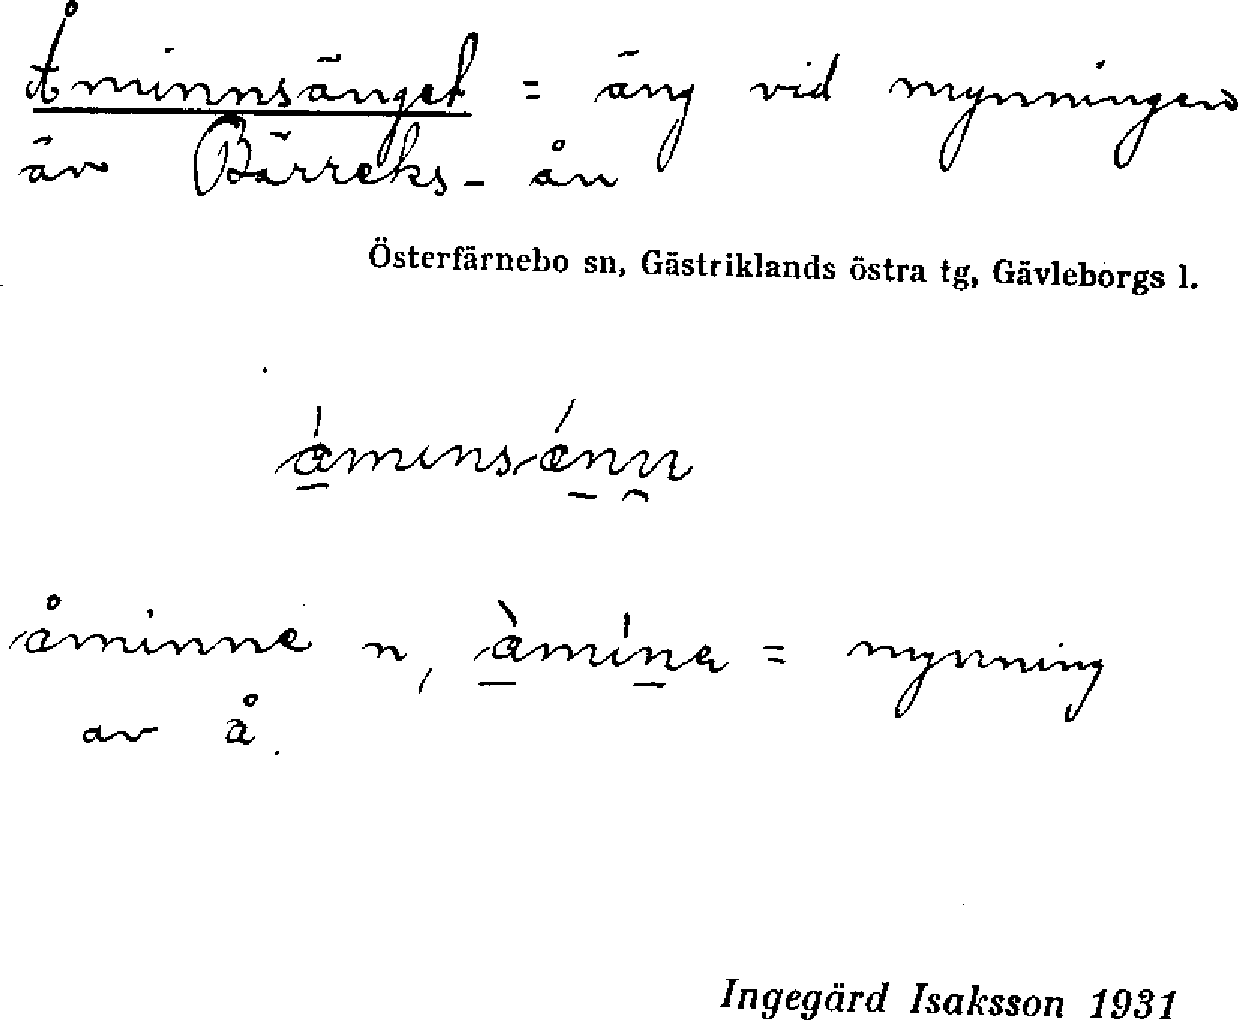 Åminnsänget = äng vid mynningen
äv Bärreks-ån
Österfärnebo sn, Gästriklands östra tg, Gävleborgs l.
åminne n, = mynning
av å.
Ingegärd Isaksson 1931